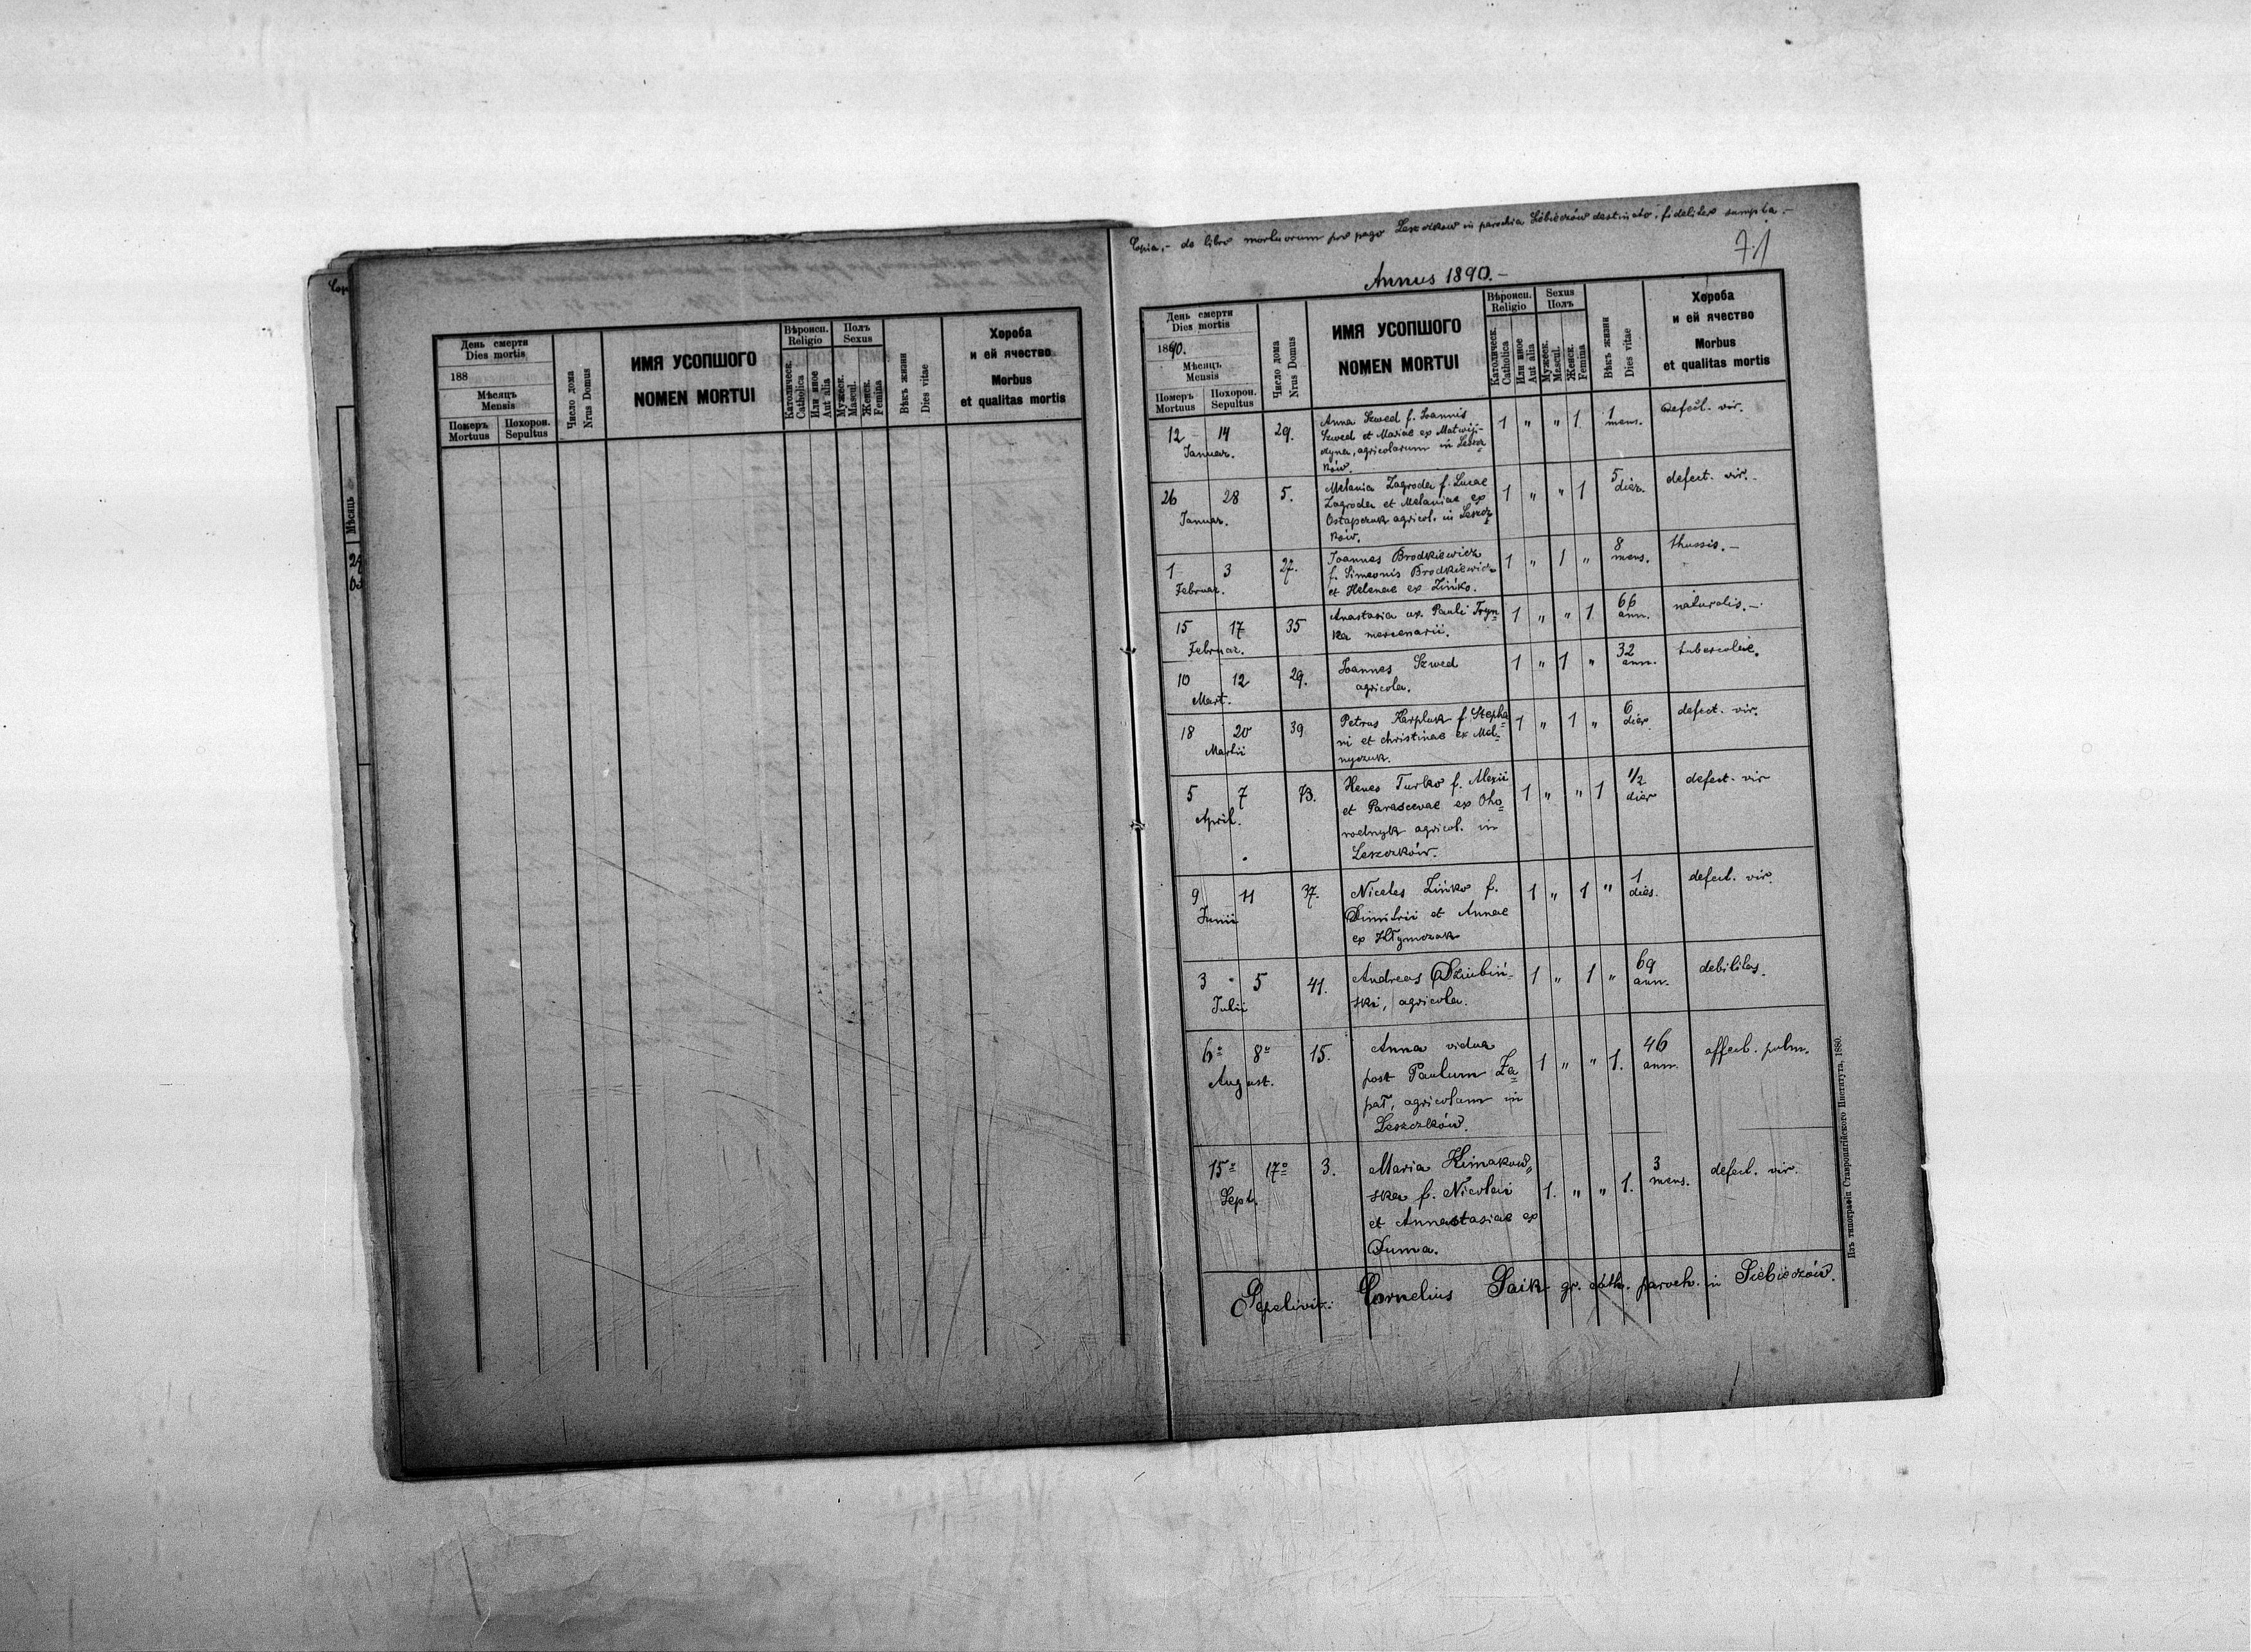 День смерти
Dies mortis
188
Мѣсяцъ
Mensis
Померъ
Mortuus
Похорон.
Sepultus
Число дома
Nrus Domus
ИМЯ УСОПШОГО
NOMEN MORTUI
Вѣроисп.
Religio
Католическ.
Catholica
Или иное
Aut alia
Полъ
Sexus
Мужеск.
Mascul.
Женск.
Femina
Вѣкъ жизни
Dies vitae
Хороба
и ей ячество
Morbus
et qualitas mortis
Мѣсяць
Copia.- de libro mortuorum pro pago Leszczkow in parochia destincto, fideliter sumpta.-
71
Annus 1890.-
День смерти
Dies mortis
1890.
Мѣсяцъ
Mensis
Померъ
Mortuus
Похорон.
Sepultus
Число дома
Nrus Domus
ИМЯ УСОПШОГО
NOMEN MORTUI
Вѣроисп.
Religio
Католическ.
Catholica
Или иное
Aut alia
Sexus
Полъ
Мужеск.
Mascul.
Женск.
Femina
Вѣкъ жизни
Dies vitae
Хороба
и ей ячество
Morbus
et qualitas mortis
12 14 29. Anna Szwed f. Joannis 1 " " 1 1 defect. vir.
Januar. Szwed et Mariae ex Matwij- mens.
dyna, agricolarum in Leszcz
ków.
26 28 5. Melania Zagroda f. Lucae 1 " " 1 5 defect. vir.-
Januar. Zagroda et Melaniae ex dier.
Ostapczuk agricol. in Leszcz
ków.
1 3 27. Joannes Brodkiewicz 1 " 1 " 8 thussis.-
Februar. f. Simeonis Brodkiewicz mens.
et Helenae ex Zińko.
15 17 35 Anastasia ux. Pauli Tryn 1 " " 1 66 naturalis.-
Februar. ka mercenarii. ann.
10 12 29. Joannes Szwed 1 " 1 " 32
Mart. agricola. ann.
18 20 39 Petrus Karpluk f. Stepha- 1 " 1 " 6 defect. vir.
Martii ni et Christinae ex Mel- dier
nyczuk.
5 7 73. Turko f. Alexii 1 " " 1 1/2 defect. vir
April. et Parascevae ex Oho- dier
rodnyk agricol. in
Leszczków.
9 11 37. Nicetas Zińko f. 1 " 1 " 1 defect. vir.
Junii Dimitrii et Annae dies.
ex Kłymczak
3 5 41. Andreas Dziubiń- 1 " 1 " 69 debilitas.
Julii ski, agricola. ann.
6o 8o 15. Anna vidua 1 " " 1. 46 affect. pulm.
August. post Paulum Za- ann.
pał, agricolam in
Leszczków.
15o 17o 3. Maria Himakow- 1. " " 1. 3 defect. vir.
Sept. ska f. Nicolai mens.
et Annastasiae ex
Duma.
Sepelivit: Cornelius Saik gr. cath. paroch. in
Изъ типографіи Ставропигійского Института, 1880.